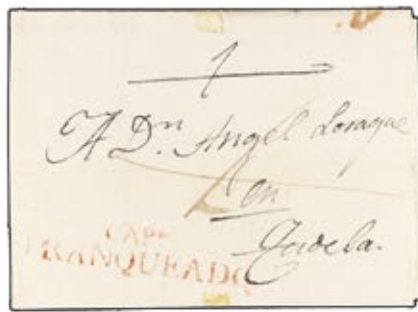 A Dn. Angel Loraque
en
Tudela.
CAPn
FRANQUEADO